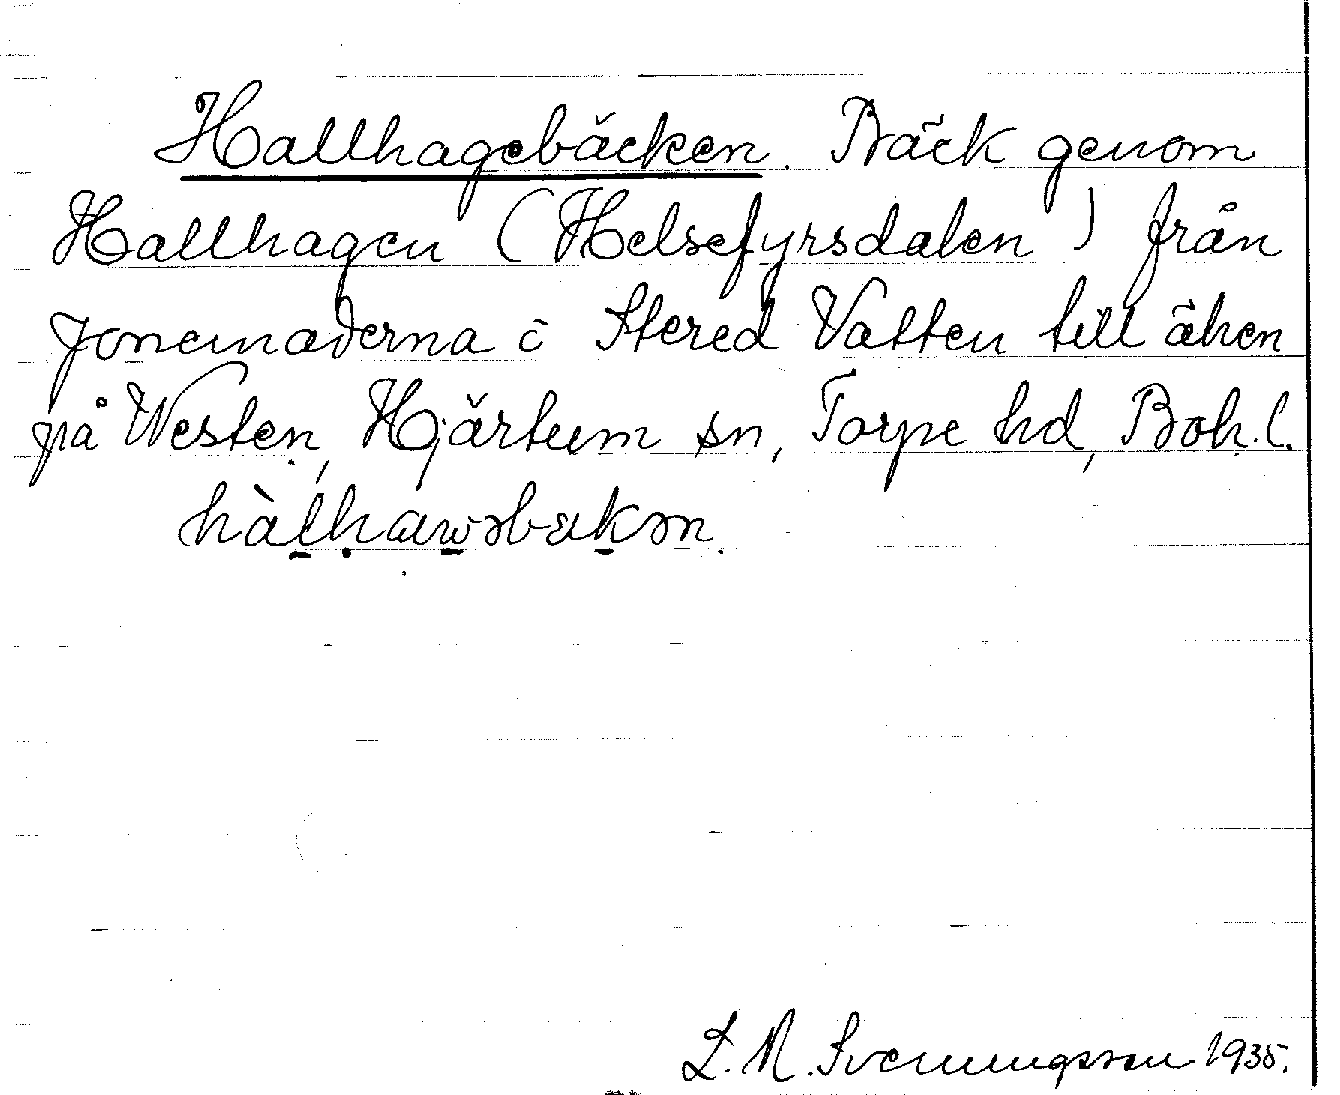 Hallhagebäcken. Bäck genom
Hallhagen (Helsefyrsdalen) från
Jonemaderna i Stered Vatten till åhen
på Westen, Hjärtum sn, Torpe hd, Boh. l.
L. N. Svenungsson 1935.